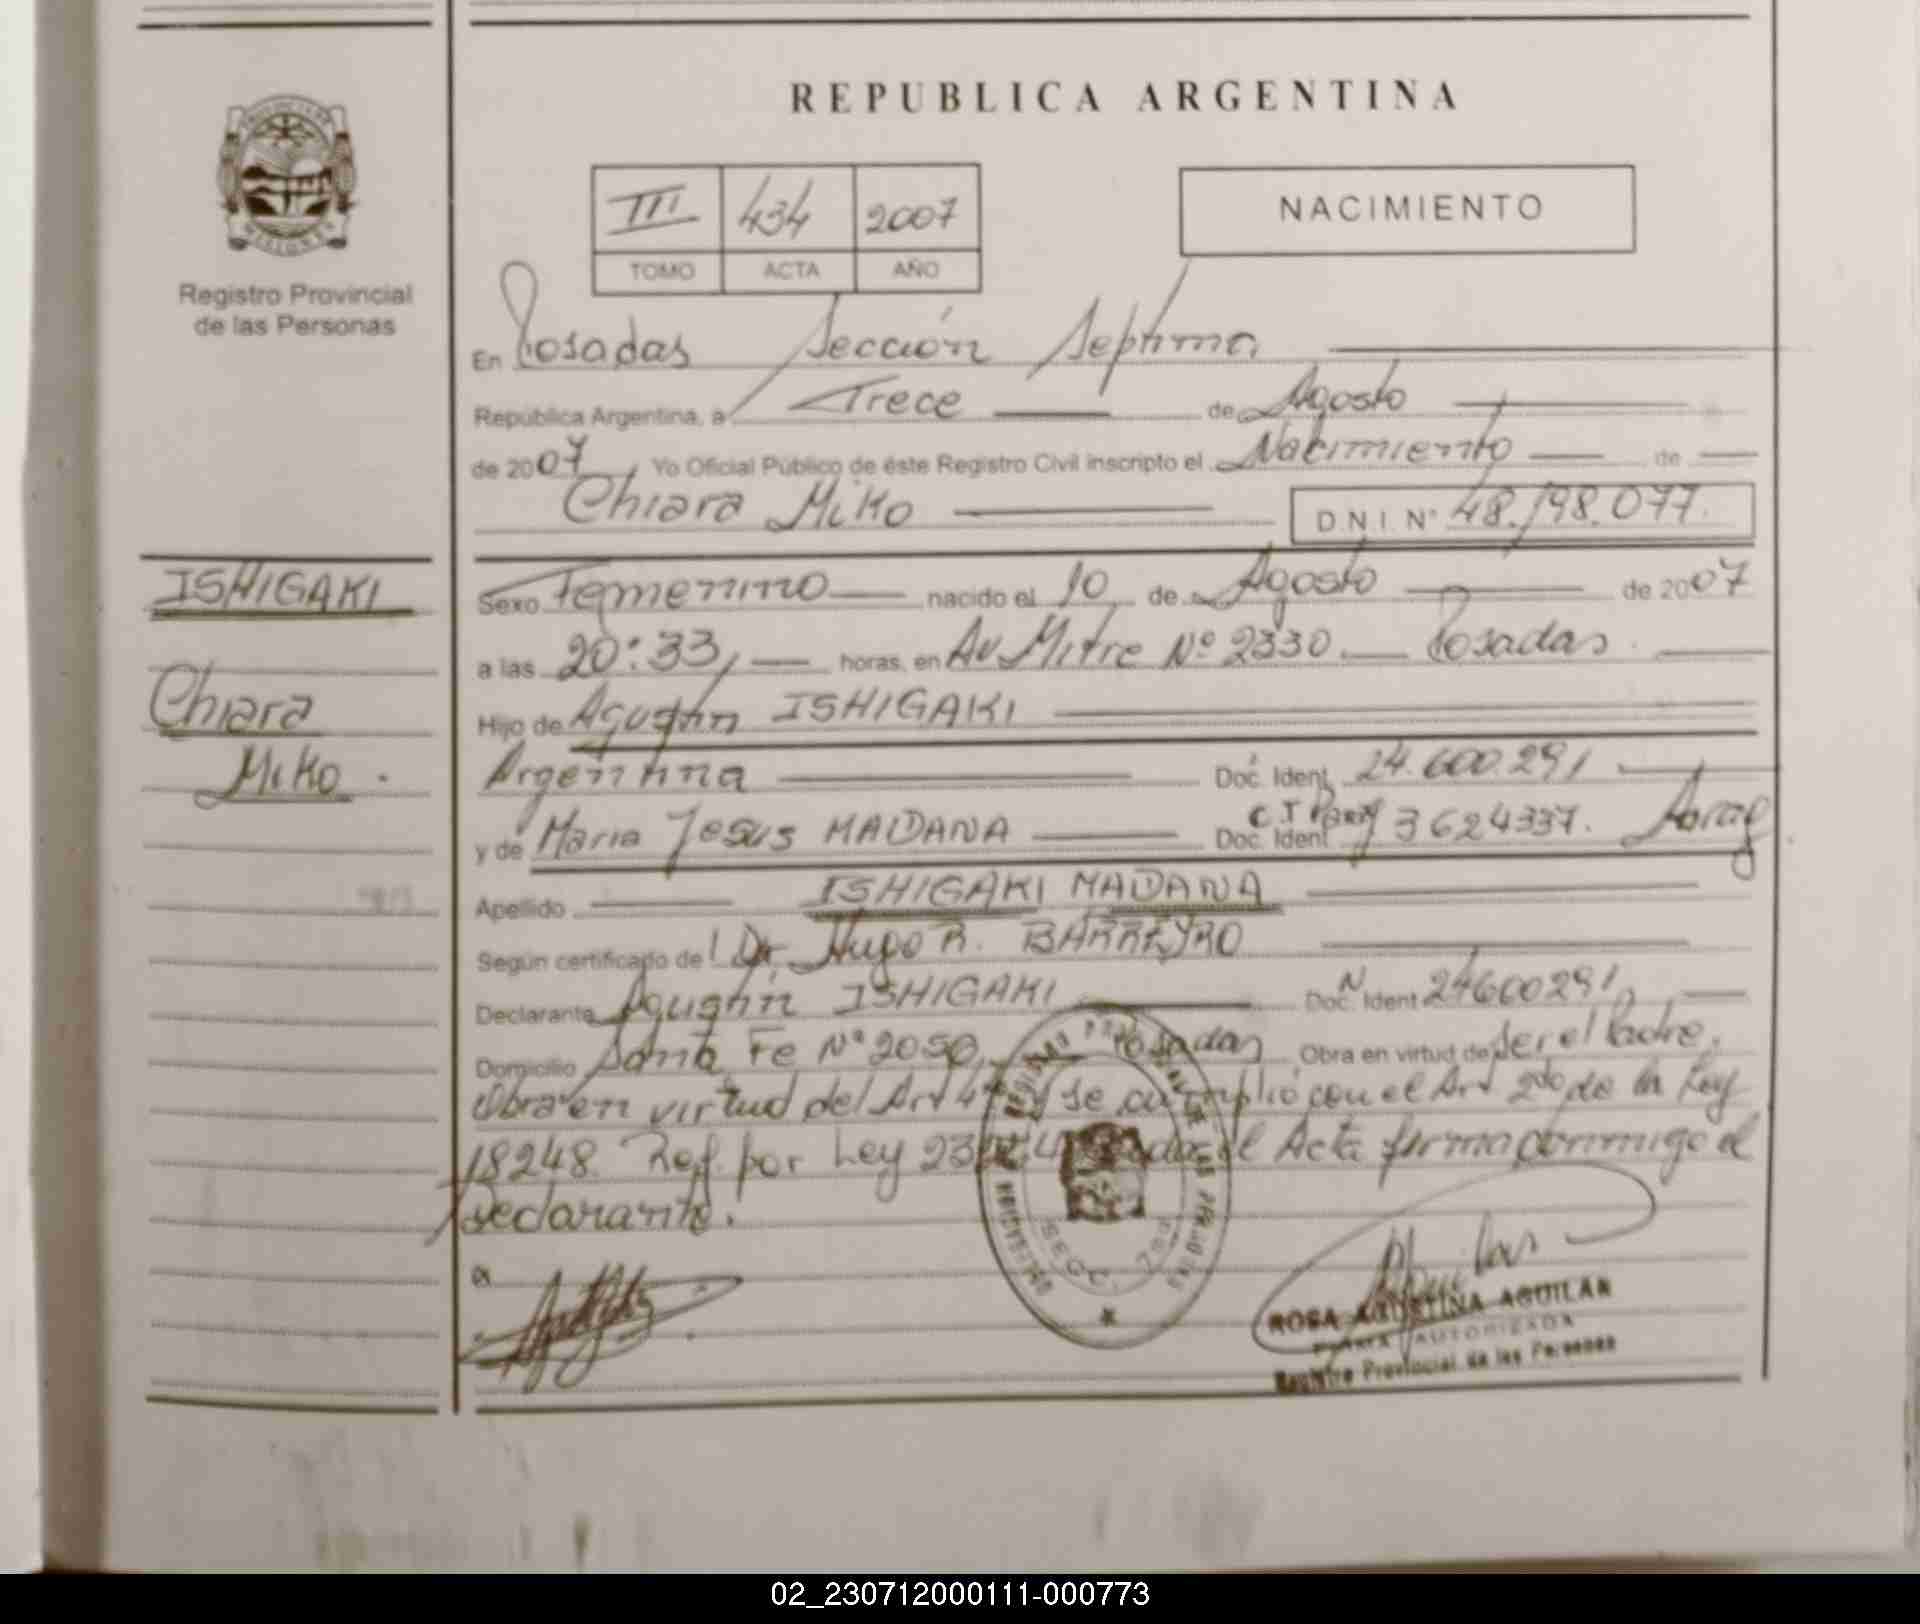 REPUBLICA ARGENTINA
PROVINCIA DE
MISIONES
Registro Provincial
de las Personas
III 434 2007
TOMO ACTA AÑO
NACIMIENTO
En Posadas Sección Septima
República Argentina, a Trece de Agosto
de 2007, Yo Oficial Público de éste Registro Civil inscripto el Nacimiento de
Chiara Miko D.N.I. N° 48.198.077.
ISHIGAKI
Chiara
Miko.
Sexo Femenino nacido el 10 de Agosto de 2007
a las 20:33, horas, en Av. Mitre Nº 2330. Posadas.
Hijo de Agustín ISHIGAKI
Argentina Doc. Ident. 24.600.291
y de Maria Jesus MAIDANA Doc. Ident. 3624337.
Apellido ISHIGAKI MAIDANA
Según certificado del Dr. Hugo R. BARREYRO
Declarante Agustín ISHIGAKI Doc. Ident 24600291,
Domicilio Santa Fe Nº 2050, Posadas Obra en virtud de ser el Padre.
Obra en virtud del Art 4º y se cumplió con el Art 2do de la Ley
18248. Ref. por Ley el Acta firma conmigo el
declarante.
ROSA AGUSTINA AGUILAR
AUTORIZADA
Registro Provincial de las Personas
02_230712000111-000773